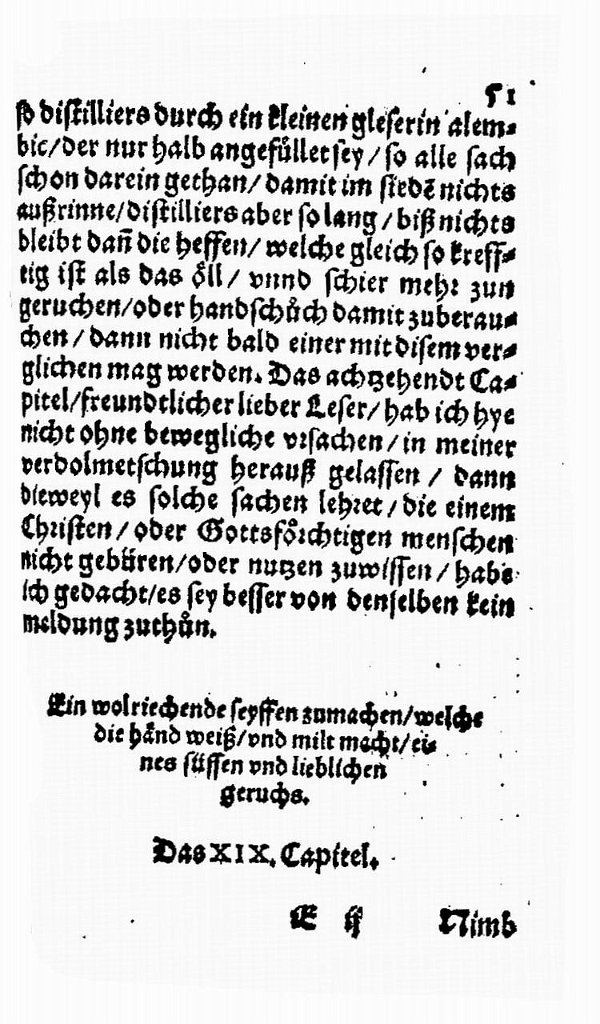 51
so distilliers durch ein kleinen gleserin alem⸗
bic/der nur halb angefüllet sey/so alle sach
schon darein gethan/damit im siedē nichts
außrinne/distilliers aber so lang/biß nichts
bleibt dañ die heffen/welche gleich so kreff⸗
tig ist als das öll/vnnd schier mehr zun
geruchen/oder handschůch damit zuberau⸗
chen/dann nicht bald einer mit disem ver⸗
glichen mag werden. Das achtzehendt Ca⸗
pitel/freundtlicher lieber Leser/hab ich hye
nicht ohne bewegliche vrsachen/in meiner
verdolmetschung herauß gelassen/dann
dieweyl es solche sachen lehret/die einem
Christen/oder Gottsförchtigen menschen
nicht gebüren/oder nutzen zuwissen/habe
ich gedacht/es sey besser von denselben kein
meldung zuthůn.
Ein wolriechende seyffen zumachen/welche
die händ weiß/vnd milt macht/ei⸗
nes süssen vnd lieblichen
geruchs.
Das XIX. Capitel.
E ij Nimb